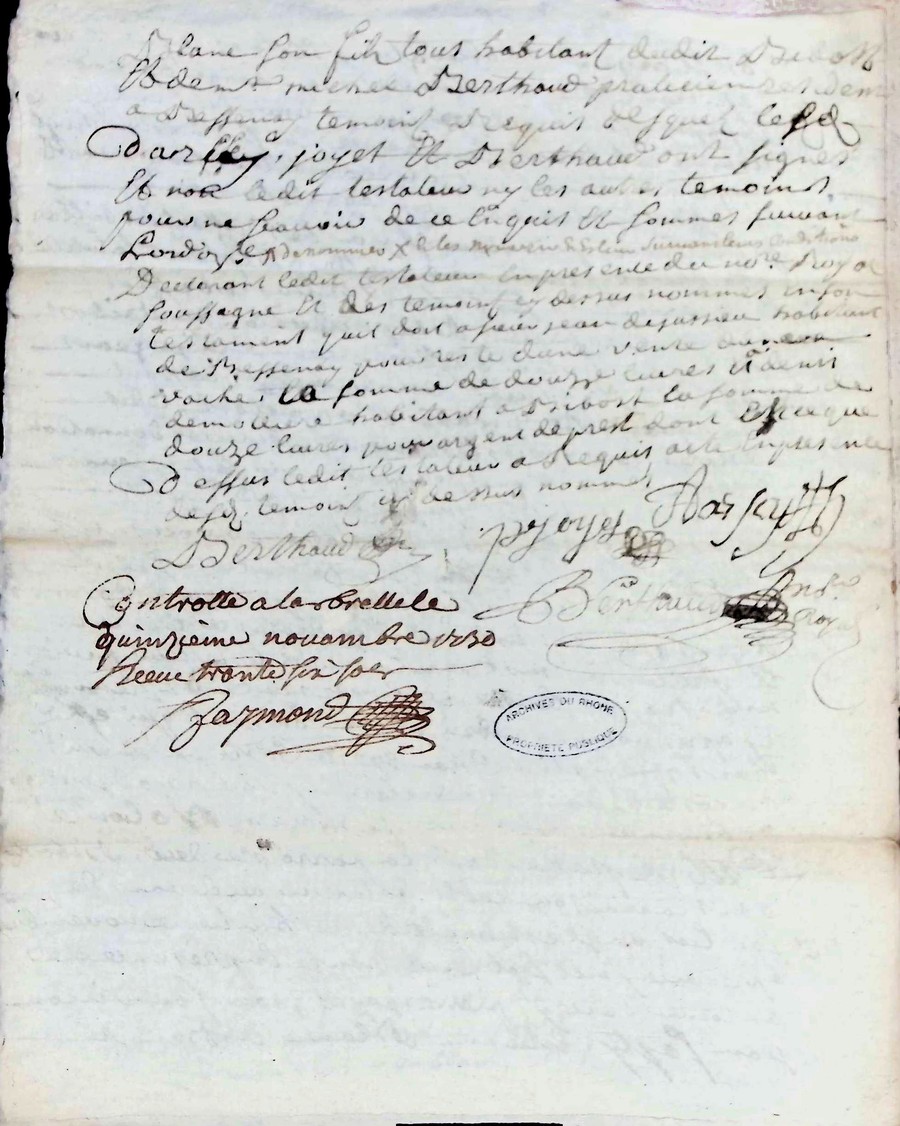 Blanc son fils tous habitant dudit Bibost
Et de mr michel Berthaud praticien resident
a Bessenay temoins Requis desquel lesd
Darfey, joyet Et Berthaud ont signés
Et non ledit testateur ny les autres temoins
pour ne scavoir de ce Enquis Et sommes suivant
Lordo
Declarant ledit testateur En presence du nore Royal
soussigne Et des temoins cy dessus nommes en son
testament quil doit a sieur jean habitant
de Bessenay pour reste dune vente
vache, la somme de douze livres Et a denis
demoliere habitant a Bibost la somme de
douze livres pour argent de prest dont Et ce que
Dessus ledit testateur a Requis acte En presence
desd. temoins cy dessus nommes
pjoyet Darfey
Berthaud
Berthaud nore Royal
Controlle a larbrelle le
quinzieme nouambre 1730
Receu trante six sols
Raymond
ARCHIVES DU RHONE
PROPRIETE PUBLIQUE